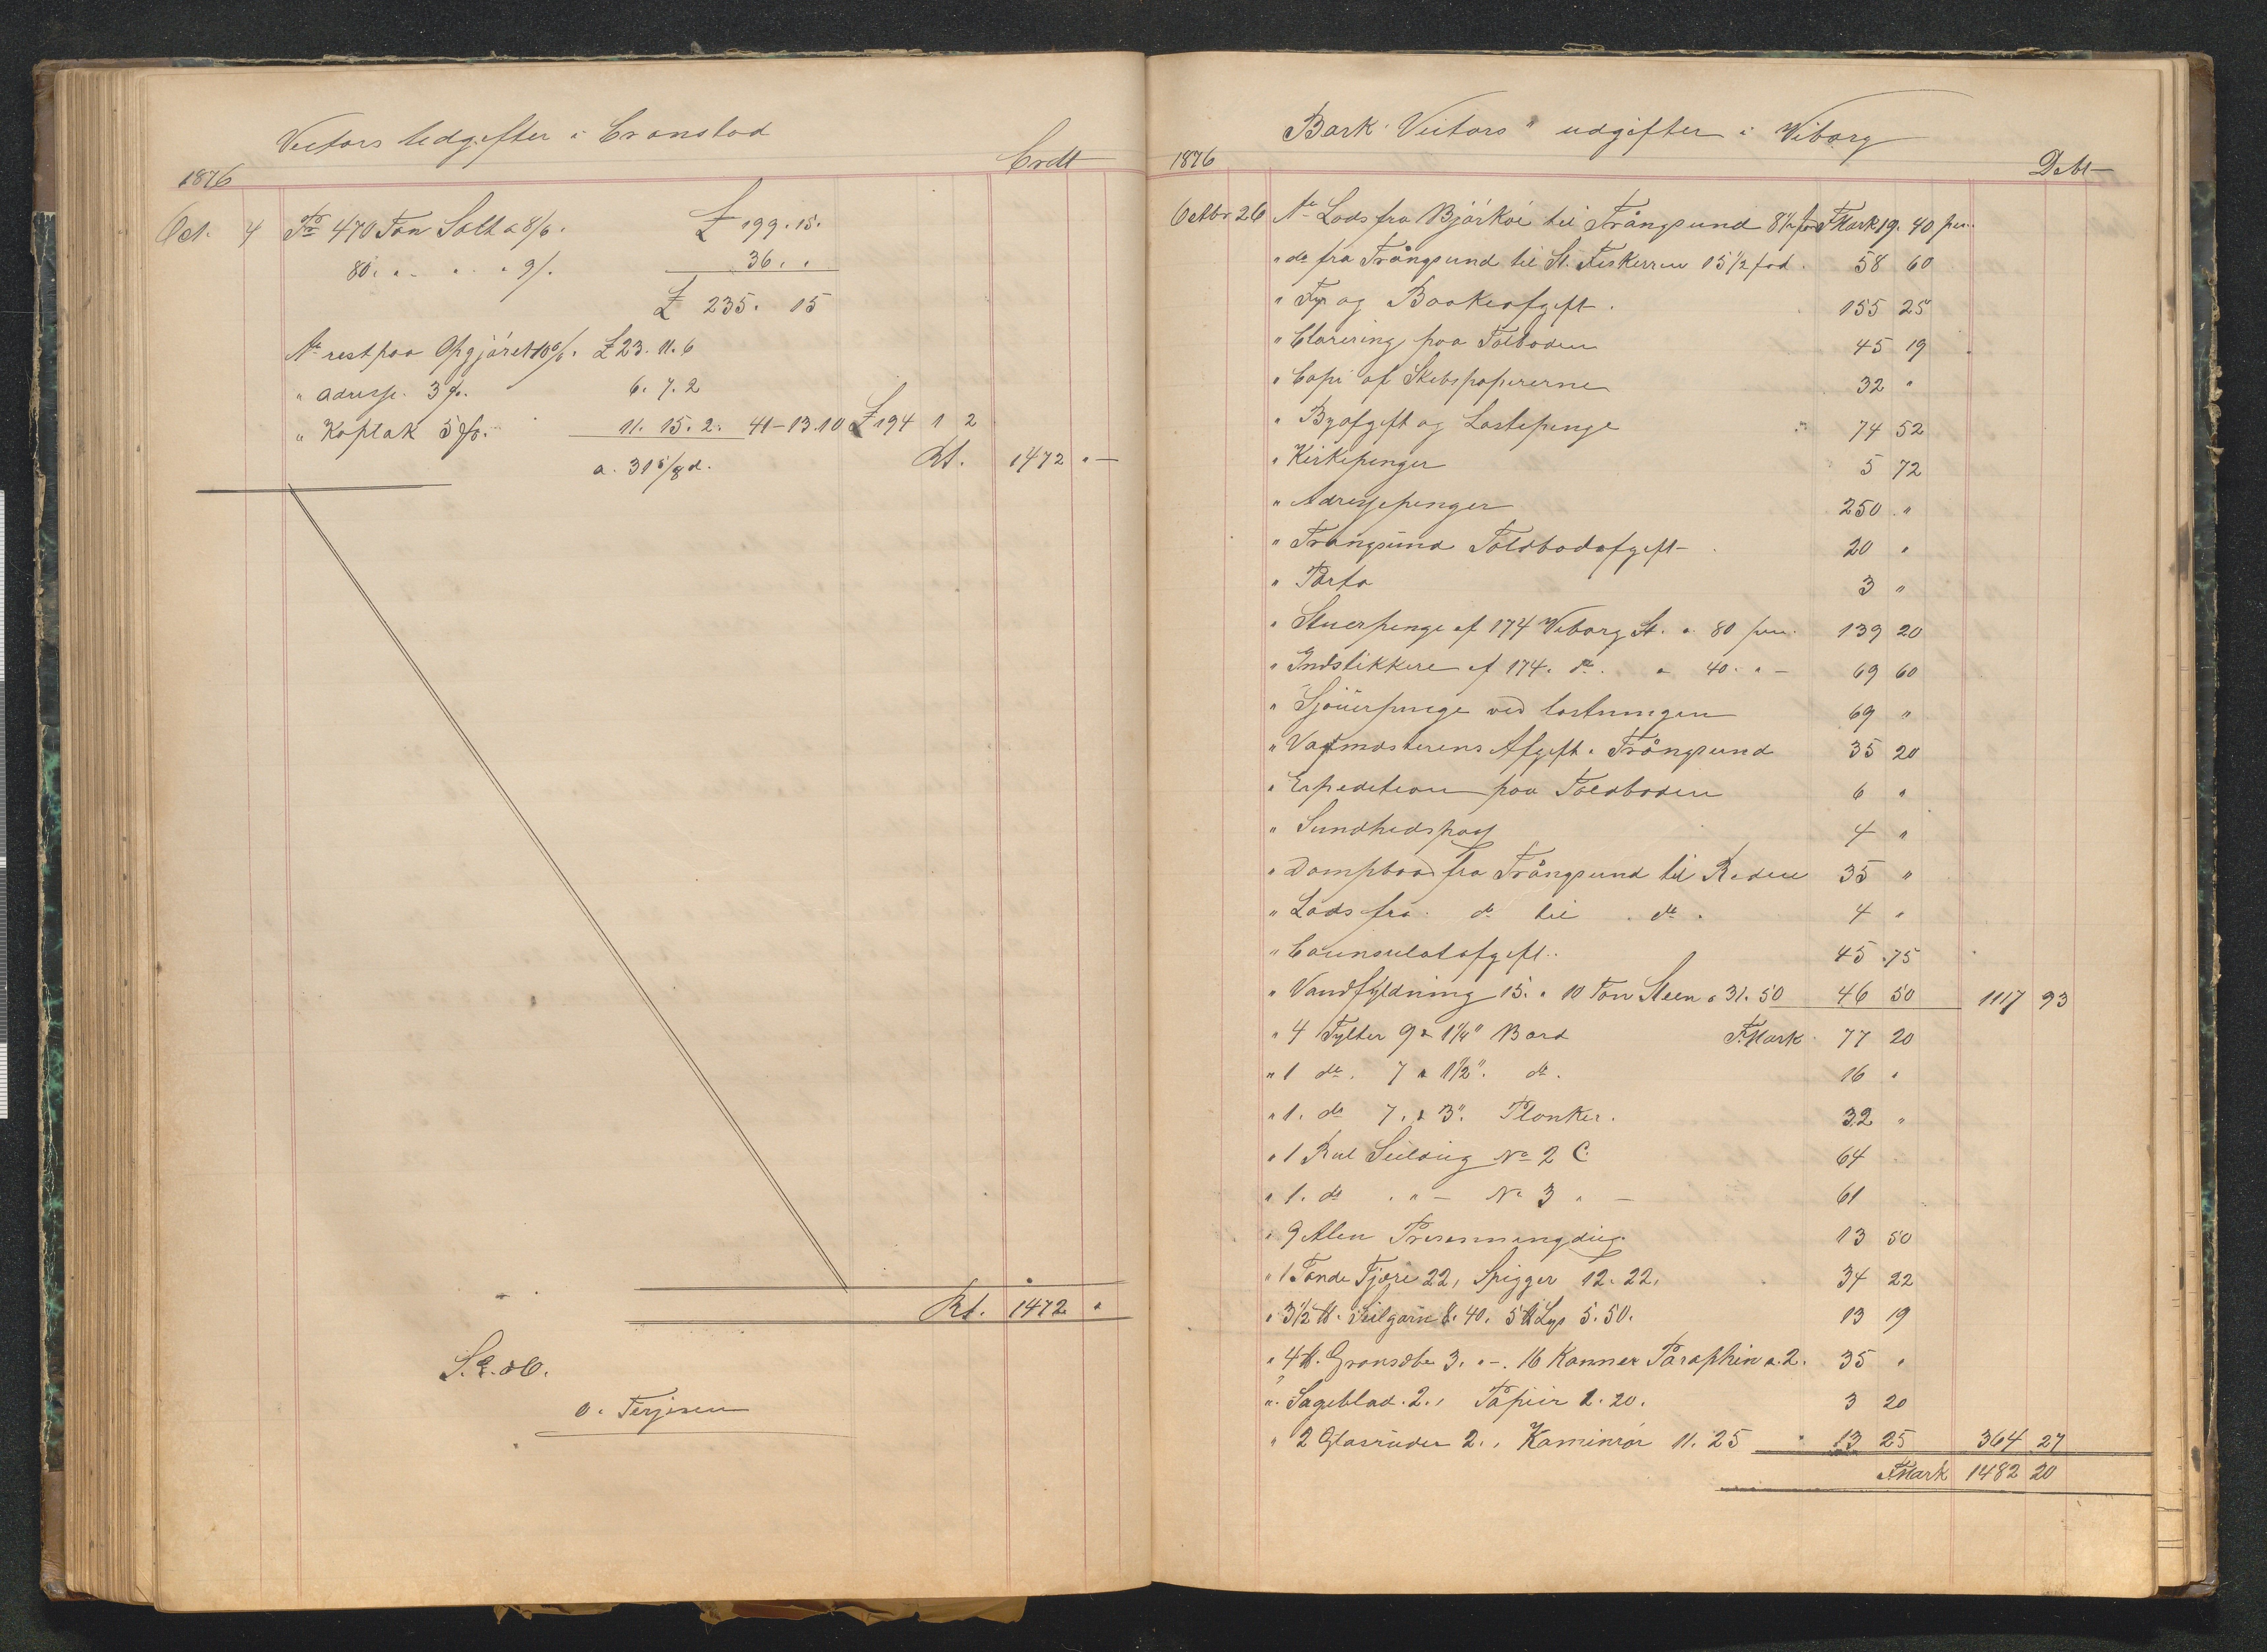 Victors Udgifter i Cronstad
1876
Credt
Oct. 4 Pr 470 Ton Salt a 8/6. £ 199.15.
80. " " " 9/. 36. "
£ 235. 15
At rest paa Opgjöret 10%. £ 23. 11. 6
" adresse. 3 %. 6. 7. 2
" Kaplak 5 %. 11. 15. 2. 41-13.10 £ 194 1 2
a. 31 5/8 d. Rt. 1472 " -
Rt. 1472 "
S.E. & O.
O. Terjesen
Bark "Victors" udgifter i Viborg
1876
Debt
Octbr 26 At Lods fra Björkoë til Trångsund 8½ fod FMark 19. 40 pen.
" do fra Trångsund til St. Fiskerren 15½ fod. 58 60
" Fyr og Baakeafgift. 155 25
" Clarering paa Tolboden 45 19
" Copi af Skibspapirerne 32 "
" Byafgift og Lastepenge 74 52
" Kirkepenger 5 72
" Adressepenger 250 "
" Trangsund Toldbodafgift 20 "
" Porto 3 "
" Stuerpenge af 174 Viborg St. a 80 pen. 139 20
" Indstikkere af 174. do. a 40. " - 69 60
" Sjouerpenge ved lastningen 69 "
" Vagtmesterens Afgift i Trångsund 35 20
" Expedition paa Toldboden 6 "
" Sundhedspas 4 "
" Dampbaad fra Trångsund til Reden 35 "
" Lods fra do til do. 4 "
" Counsulatafgift. 45 75
" Vandfyldning 15. " 10 Ton Steen a 31. 50 46 50 1117 93
" 4 Tylter 9 a 1¼" Bord F.Mark 77 20
" 1 do. 7 a 1½". do. 16 "
" 1. do 7. a 3". Planker. 32 "
" 1 Rul Seildug No 2 C. 64
" 1. do " - No 3 " - 61
" 9 Alen Presenningdug. 13 50
" 1 Tønde Tjære 22, Spigger 12. 22. 34 22
" 3½ ℔. Seilgarn 8. 40. 5 ℔ Lys 5. 50. 13 19
" 4 ℔. Grønsæbe 3. " -. 16 Kanner Paraphin a. 2. 35 "
" Sageblad. 2. " Papiir 1. 20. 3 20
" 2 Glasruder 2. " Kaminrör 11. 25 13 25 364 27
FMark 1482 20